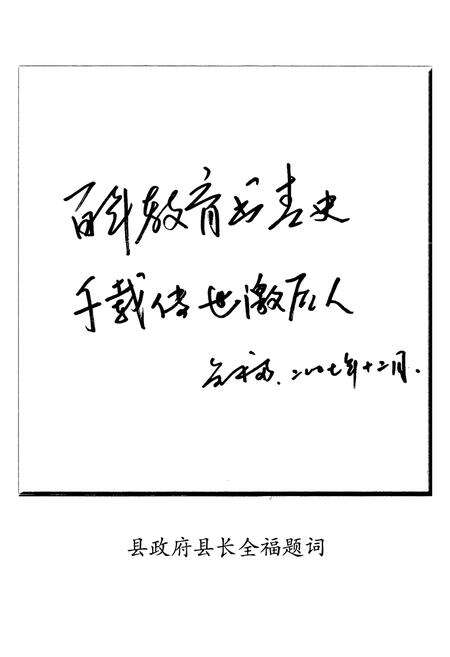 百年教育书青史
千载传世激后人
全福、二〇〇七年十二月.
县政府县长全福题词